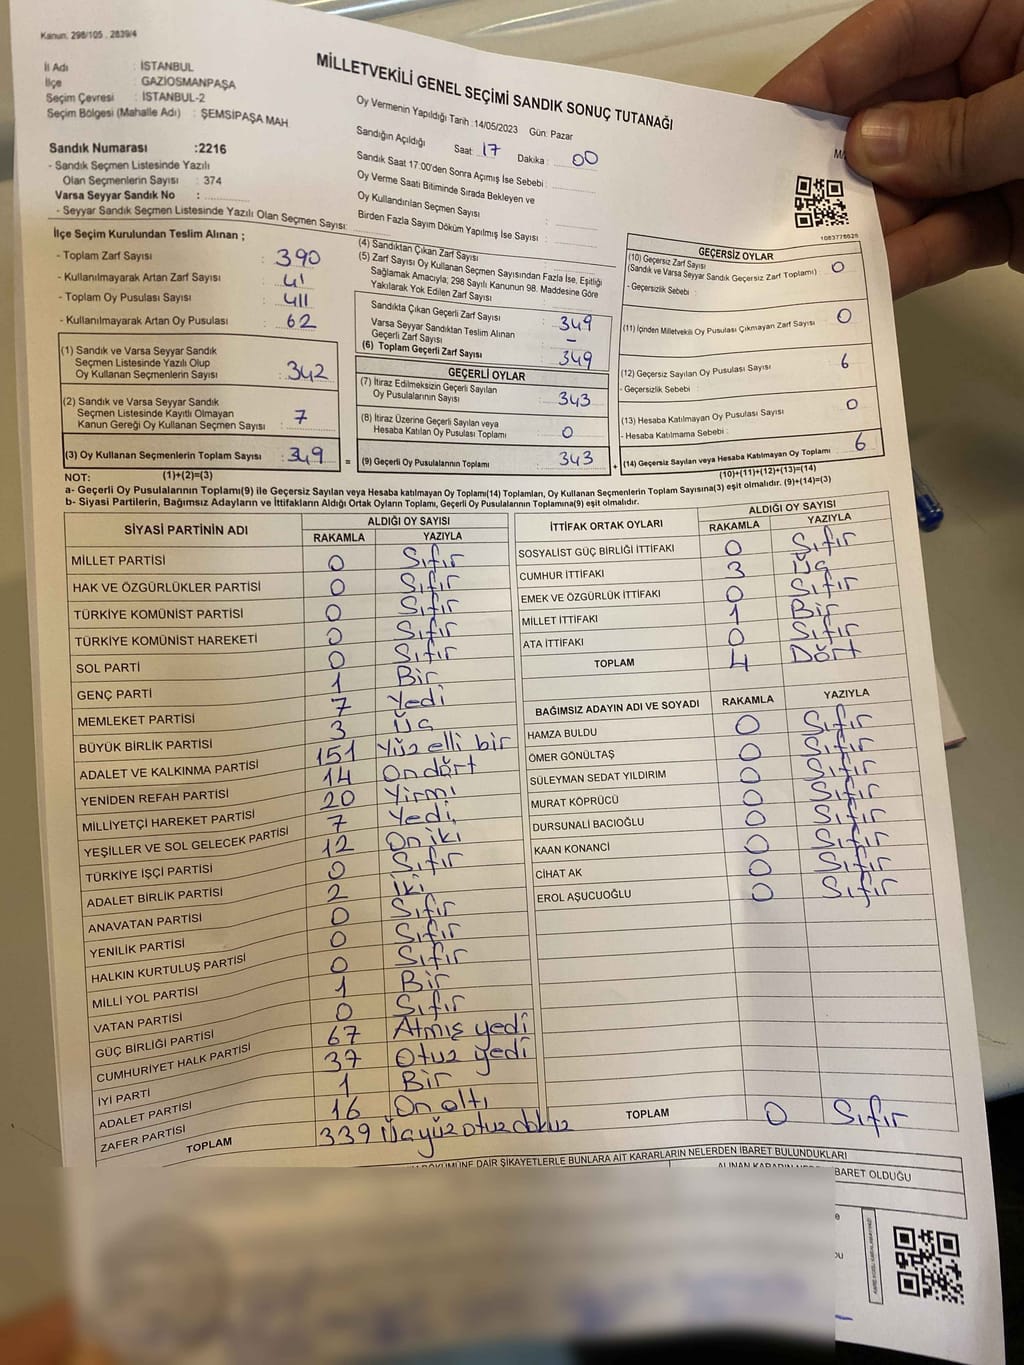 Kanun: 298/105 . 2839/4
MİLLETVEKİLİ GENEL SEÇİMİ SANDIK SONUÇ TUTANAĞI
İl Adı : İSTANBUL
İlçe : GAZİOSMANPAŞA
Seçim Çevresi : İSTANBUL-2
Seçim Bölgesi (Mahalle Adı) : ŞEMSİPAŞA MAH
Sandık Numarası :2216
- Sandık Seçmen Listesinde Yazılı
Olan Seçmenlerin Sayısı : 374
Varsa Seyyar Sandık No :
- Seyyar Sandık Seçmen Listesinde Yazılı Olan Seçmen Sayısı:
Oy Vermenin Yapıldığı Tarih :14/05/2023 Gün: Pazar
Sandığın Açıldığı Saat: 17 Dakika : 00
Sandık Saat 17:00'den Sonra Açımış İse Sebebi :
Oy Verme Saati Bitiminde Sırada Bekleyen ve
Oy Kullandırılan Seçmen Sayısı :
Birden Fazla Sayım Döküm Yapılmış İse Sayısı :
1083778628
İlçe Seçim Kurulundan Teslim Alınan ;
- Toplam Zarf Sayısı : 390
- Kullanılmayarak Artan Zarf Sayısı : 41
- Toplam Oy Pusulası Sayısı : 411
- Kullanılmayarak Artan Oy Pusulası : 62
(1) Sandık ve Varsa Seyyar Sandık
Seçmen Listesinde Yazılı Olup
Oy Kullanan Seçmenlerin Sayısı : 342
(2) Sandık ve Varsa Seyyar Sandık
Seçmen Listesinde Kayıtlı Olmayan
Kanun Gereği Oy Kullanan Seçmen Sayısı : 7
(3) Oy Kullanan Seçmenlerin Toplam Sayısı : 349
(1)+(2)=(3)
(4) Sandıktan Çıkan Zarf Sayısı
(5) Zarf Sayısı Oy Kullanan Seçmen Sayısından Fazla İse, Eşitliği
Sağlamak Amacıyla; 298 Sayılı Kanunun 98. Maddesine Göre
Yakılarak Yok Edilen Zarf Sayısı :
Sandıkta Çıkan Geçerli Zarf Sayısı : 349
Varsa Seyyar Sandıktan Teslim Alınan
Geçerli Zarf Sayısı : -
(6) Toplam Geçerli Zarf Sayısı : 349
GEÇERLİ OYLAR
(7) İtiraz Edilmeksizin Geçerli Sayılan
Oy Pusulalarının Sayısı : 343
(8) İtiraz Üzerine Geçerli Sayılan veya
Hesaba Katılan Oy Pusulası Toplamı : 0
= (9) Geçerli Oy Pusulalarının Toplamı : 343
GEÇERSİZ OYLAR
(10) Geçersiz Zarf Sayısı
(Sandık ve Varsa Seyyar Sandık Geçersiz Zarf Toplamı) : 0
- Geçersizlik Sebebi :
(11) İçinden Milletvekili Oy Pusulası Çıkmayan Zarf Sayısı : 0
(12) Geçersiz Sayılan Oy Pusulası Sayısı : 6
- Geçersizlik Sebebi :
(13) Hesaba Katılmayan Oy Pusulası Sayısı : 0
- Hesaba Katılmama Sebebi :
+ (14) Geçersiz Sayılan veya Hesaba Katılmayan Oy Toplamı : 6
(10)+(11)+(12)+(13)=(14)
NOT:
a- Geçerli Oy Pusulalarının Toplamı(9) ile Geçersiz Sayılan veya Hesaba katılmayan Oy Toplamı(14) Toplamları, Oy Kullanan Seçmenlerin Toplam Sayısına(3) eşit olmalıdır. (9)+(14)=(3)
b- Siyasi Partilerin, Bağımsız Adayların ve İttifakların Aldığı Oy Ortak Oyların Toplamı, Geçerli Oy Pusulalarının Toplamına(9) eşit olmalıdır.
SİYASİ PARTİNİN ADI ALDIĞI OY SAYISI
RAKAMLA YAZIYLA
MİLLET PARTİSİ 0 Sıfır
HAK VE ÖZGÜRLÜKLER PARTİSİ 0 Sıfır
TÜRKİYE KOMÜNİST PARTİSİ 0 Sıfır
TÜRKİYE KOMÜNİST HAREKETİ 0 Sıfır
SOL PARTİ 0 Sıfır
GENÇ PARTİ 1 Bir
MEMLEKET PARTİSİ 7 Yedi
BÜYÜK BİRLİK PARTİSİ 3 Üç
ADALET VE KALKINMA PARTİSİ 151 Yüz elli bir
YENİDEN REFAH PARTİSİ 14 On dört
MİLLİYETÇİ HAREKET PARTİSİ 20 Yirmi
YEŞİLLER VE SOL GELECEK PARTİSİ 7 Yedi
TÜRKİYE İŞÇİ PARTİSİ 12 On iki
ADALET BİRLİK PARTİSİ 0 Sıfır
ANAVATAN PARTİSİ 2 İki
YENİLİK PARTİSİ 0 Sıfır
HALKIN KURTULUŞ PARTİSİ 0 Sıfır
MİLLİ YOL PARTİSİ 0 Sıfır
VATAN PARTİSİ 1 Bir
GÜÇ BİRLİĞİ PARTİSİ 0 Sıfır
CUMHURİYET HALK PARTİSİ 67 Atmış yedi
İYİ PARTİ 37 Otuz yedi
ADALET PARTİSİ 1 Bir
ZAFER PARTİSİ 16 On altı
TOPLAM 339 Üçyüz otuz dokuz
İTTİFAK ORTAK OYLARI ALDIĞI OY SAYISI
RAKAMLA YAZIYLA
SOSYALİST GÜÇ BİRLİĞİ İTTİFAKI 0 Sıfır
CUMHUR İTTİFAKI 3 Üç
EMEK VE ÖZGÜRLÜK İTTİFAKI 0 Sıfır
MİLLET İTTİFAKI 1 Bir
ATA İTTİFAKI 0 Sıfır
TOPLAM 4 Dört
BAĞIMSIZ ADAYIN ADI VE SOYADI RAKAMLA YAZIYLA
HAMZA BULDU 0 Sıfır
ÖMER GÖNÜLTAŞ 0 Sıfır
SÜLEYMAN SEDAT YILDIRIM 0 Sıfır
MURAT KÖPRÜCÜ 0 Sıfır
DURSUNALİ BACIOĞLU 0 Sıfır
KAAN KONANCİ 0 Sıfır
CİHAT AK 0 Sıfır
EROL AŞUCUOĞLU 0 Sıfır
TOPLAM 0 Sıfır
DAİR ŞİKAYETLERLE BUNLARA AİT KARARLARIN NELERDEN İBARET BULUNDUKLARI
BARET OLDUĞU